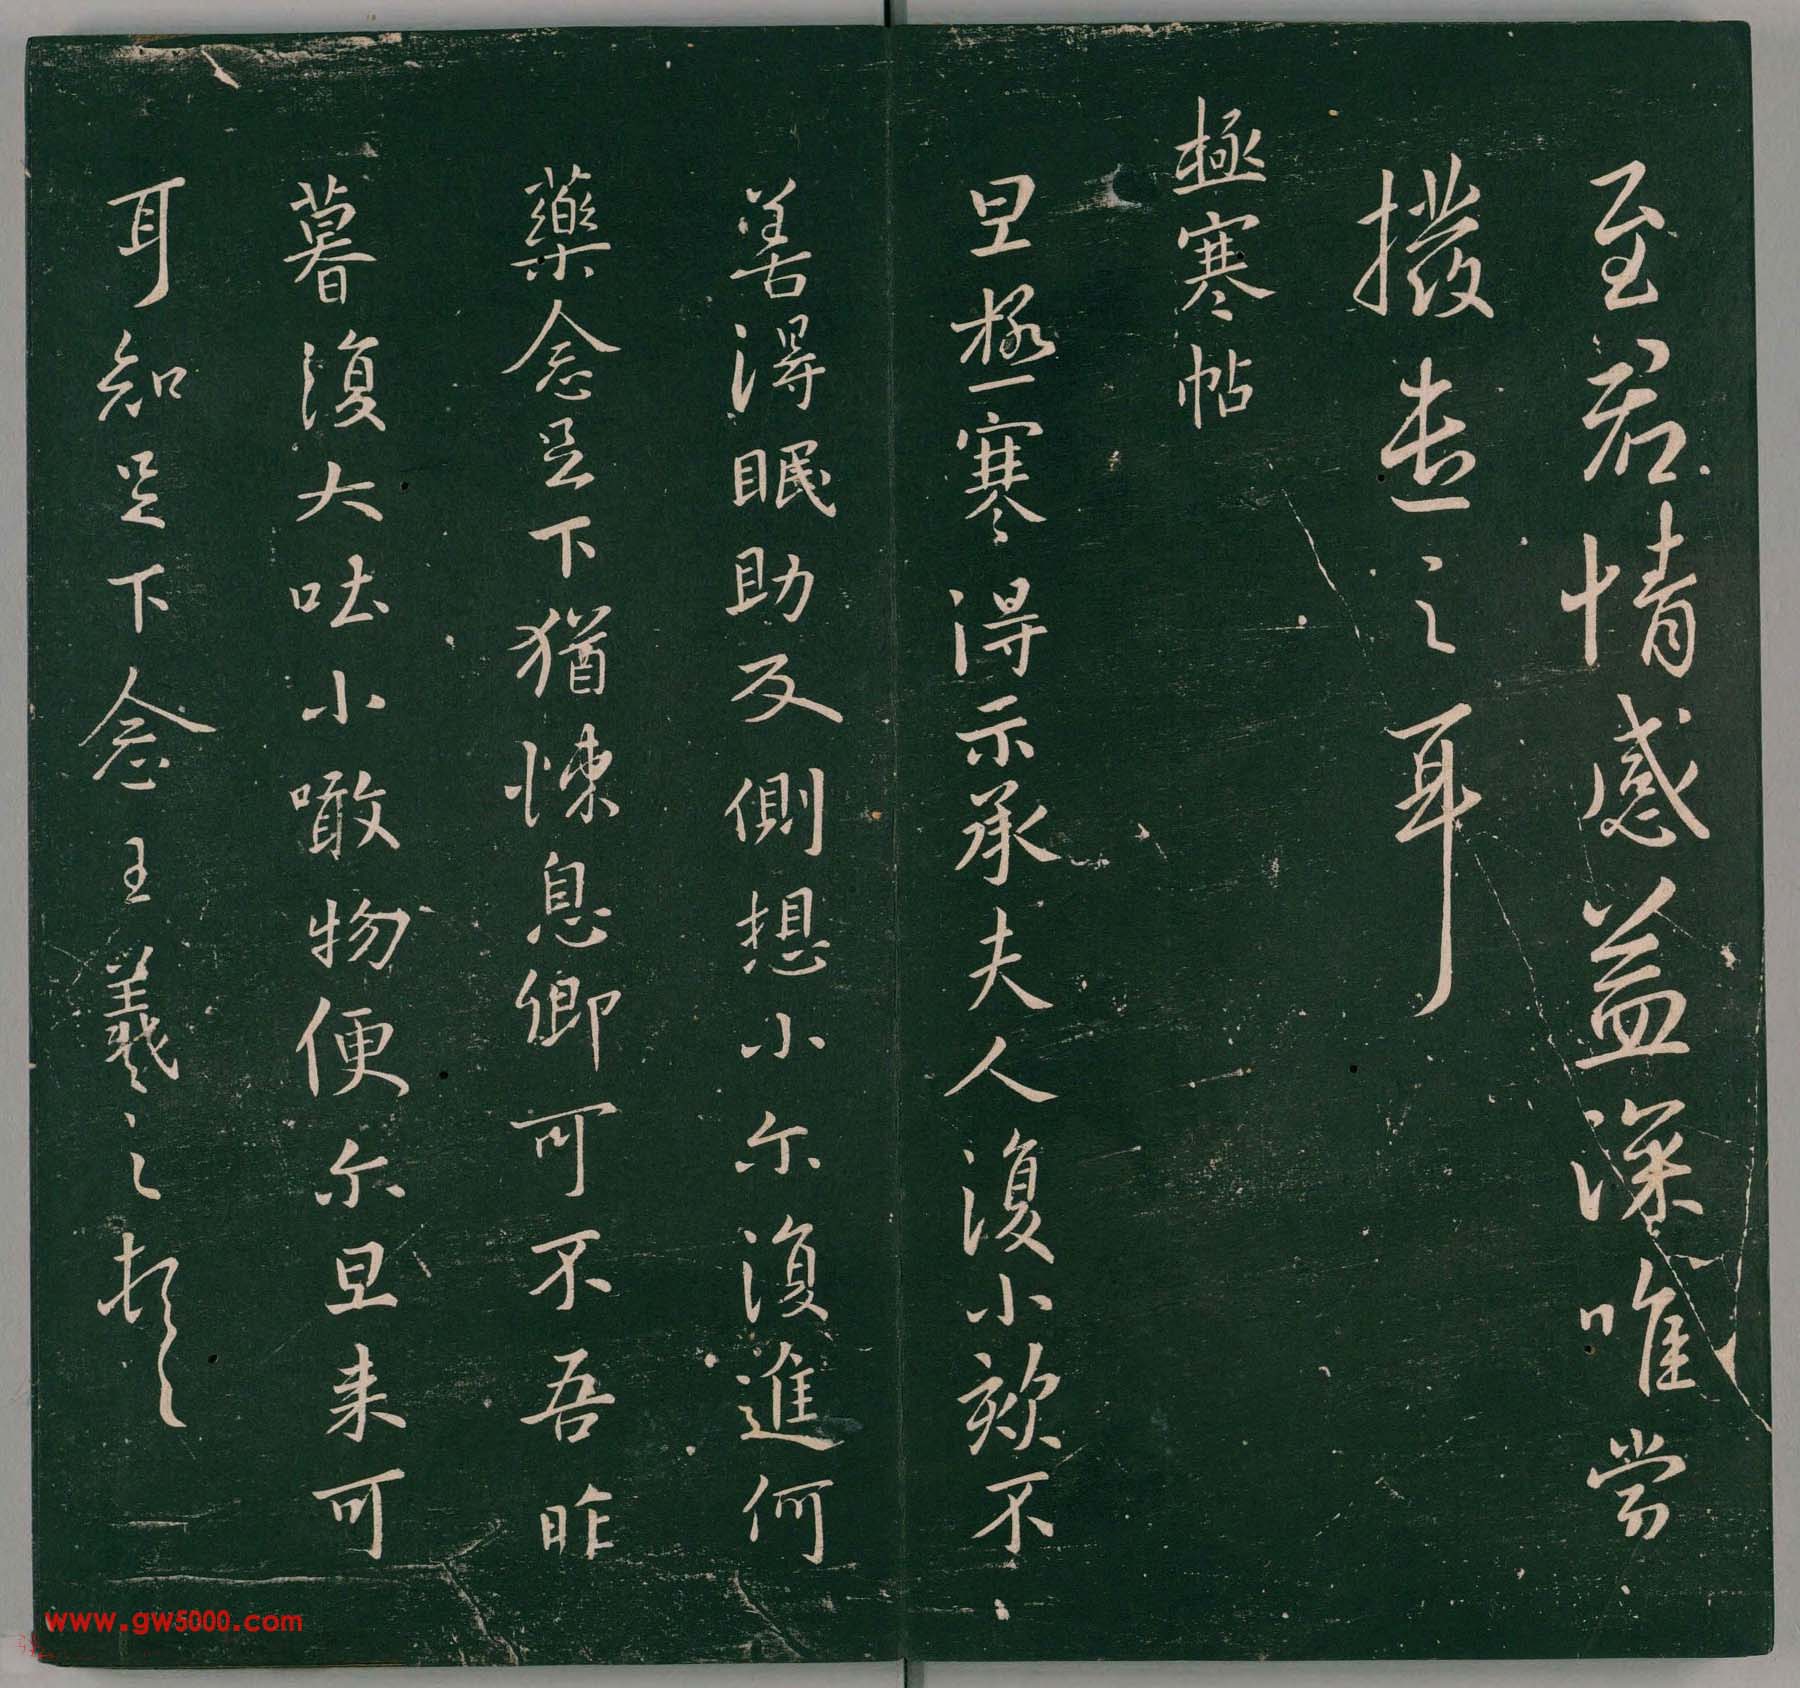 至君情感益深唯當
撥遣之耳
極寒帖
旦極寒得示承夫人復小欬不
善得眠助反側想小尔復進何
藥念足下猶悚息卿可不吾昨
暮復大吐小噉物便尔旦来可
耳知足下念王羲之頓
www.gw5000.com